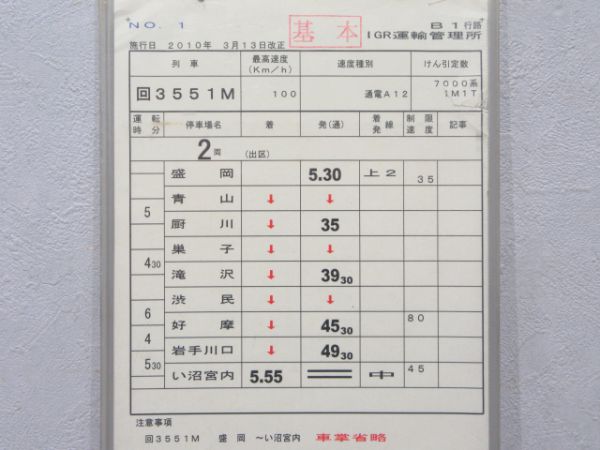 NO. 1 基本 B1行路
施行日 2010年 3月13日改正 IGR運輸管理所
列車 最高速度(Km/h) 速度種別 けん引定数
回3551M 100 通電A12 7000系 1M1T
運転時分 停車場名 着 発(通) 着発線 制限速度 記事
2両 (出区)
盛岡 5.30 上2 35
青山 ↓ ↓
5 厨川 ↓ 35
巣子 ↓ ↓
430 滝沢 ↓ 3930
渋民 ↓ ↓
6 好摩 ↓ 4530 80
4 岩手川口 ↓ 4930
530 い沼宮内 5.55 中 45
注意事項
回3551M 盛岡 ~い沼宮内 車掌省略